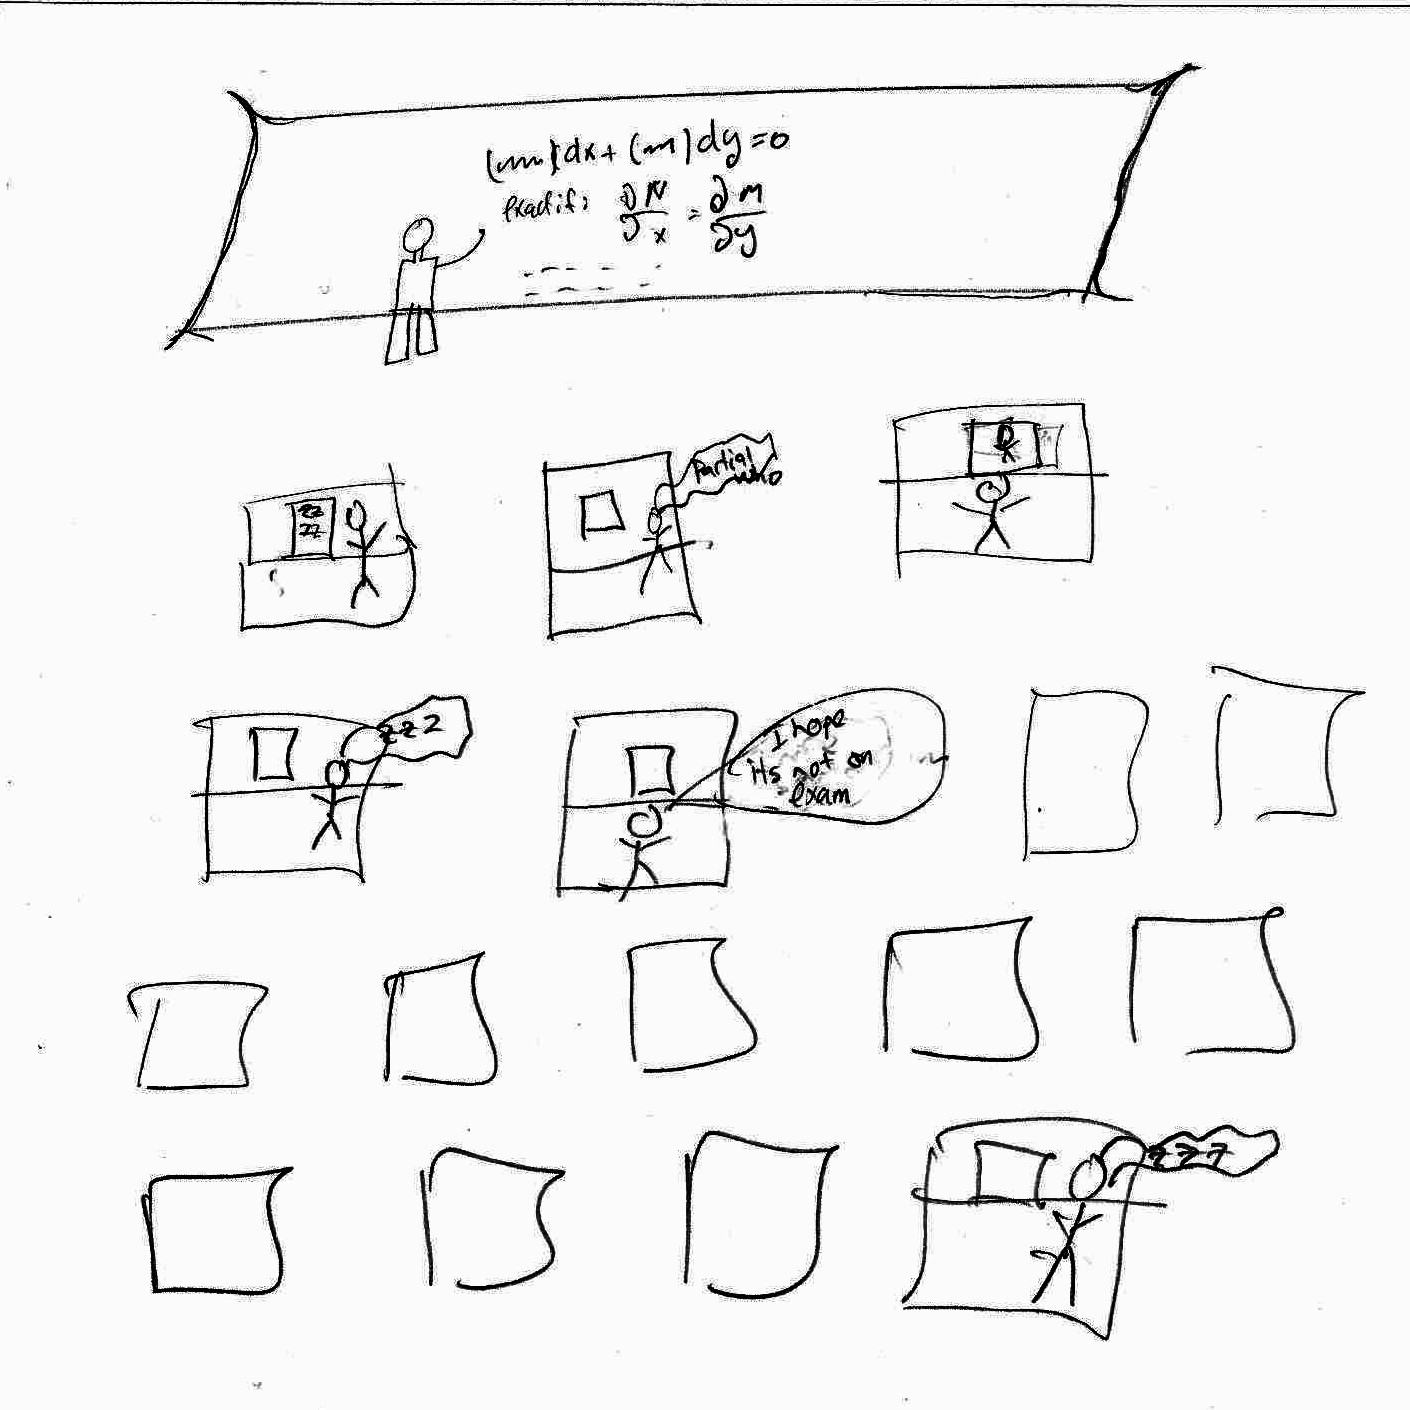 (mm)dx + (m)dy = 0
exact if: ∂N/∂x = ∂m/∂y
zz
zz
Partial
who
zzz
I hope
its not on
exam
zzz